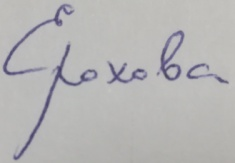 Ерохова